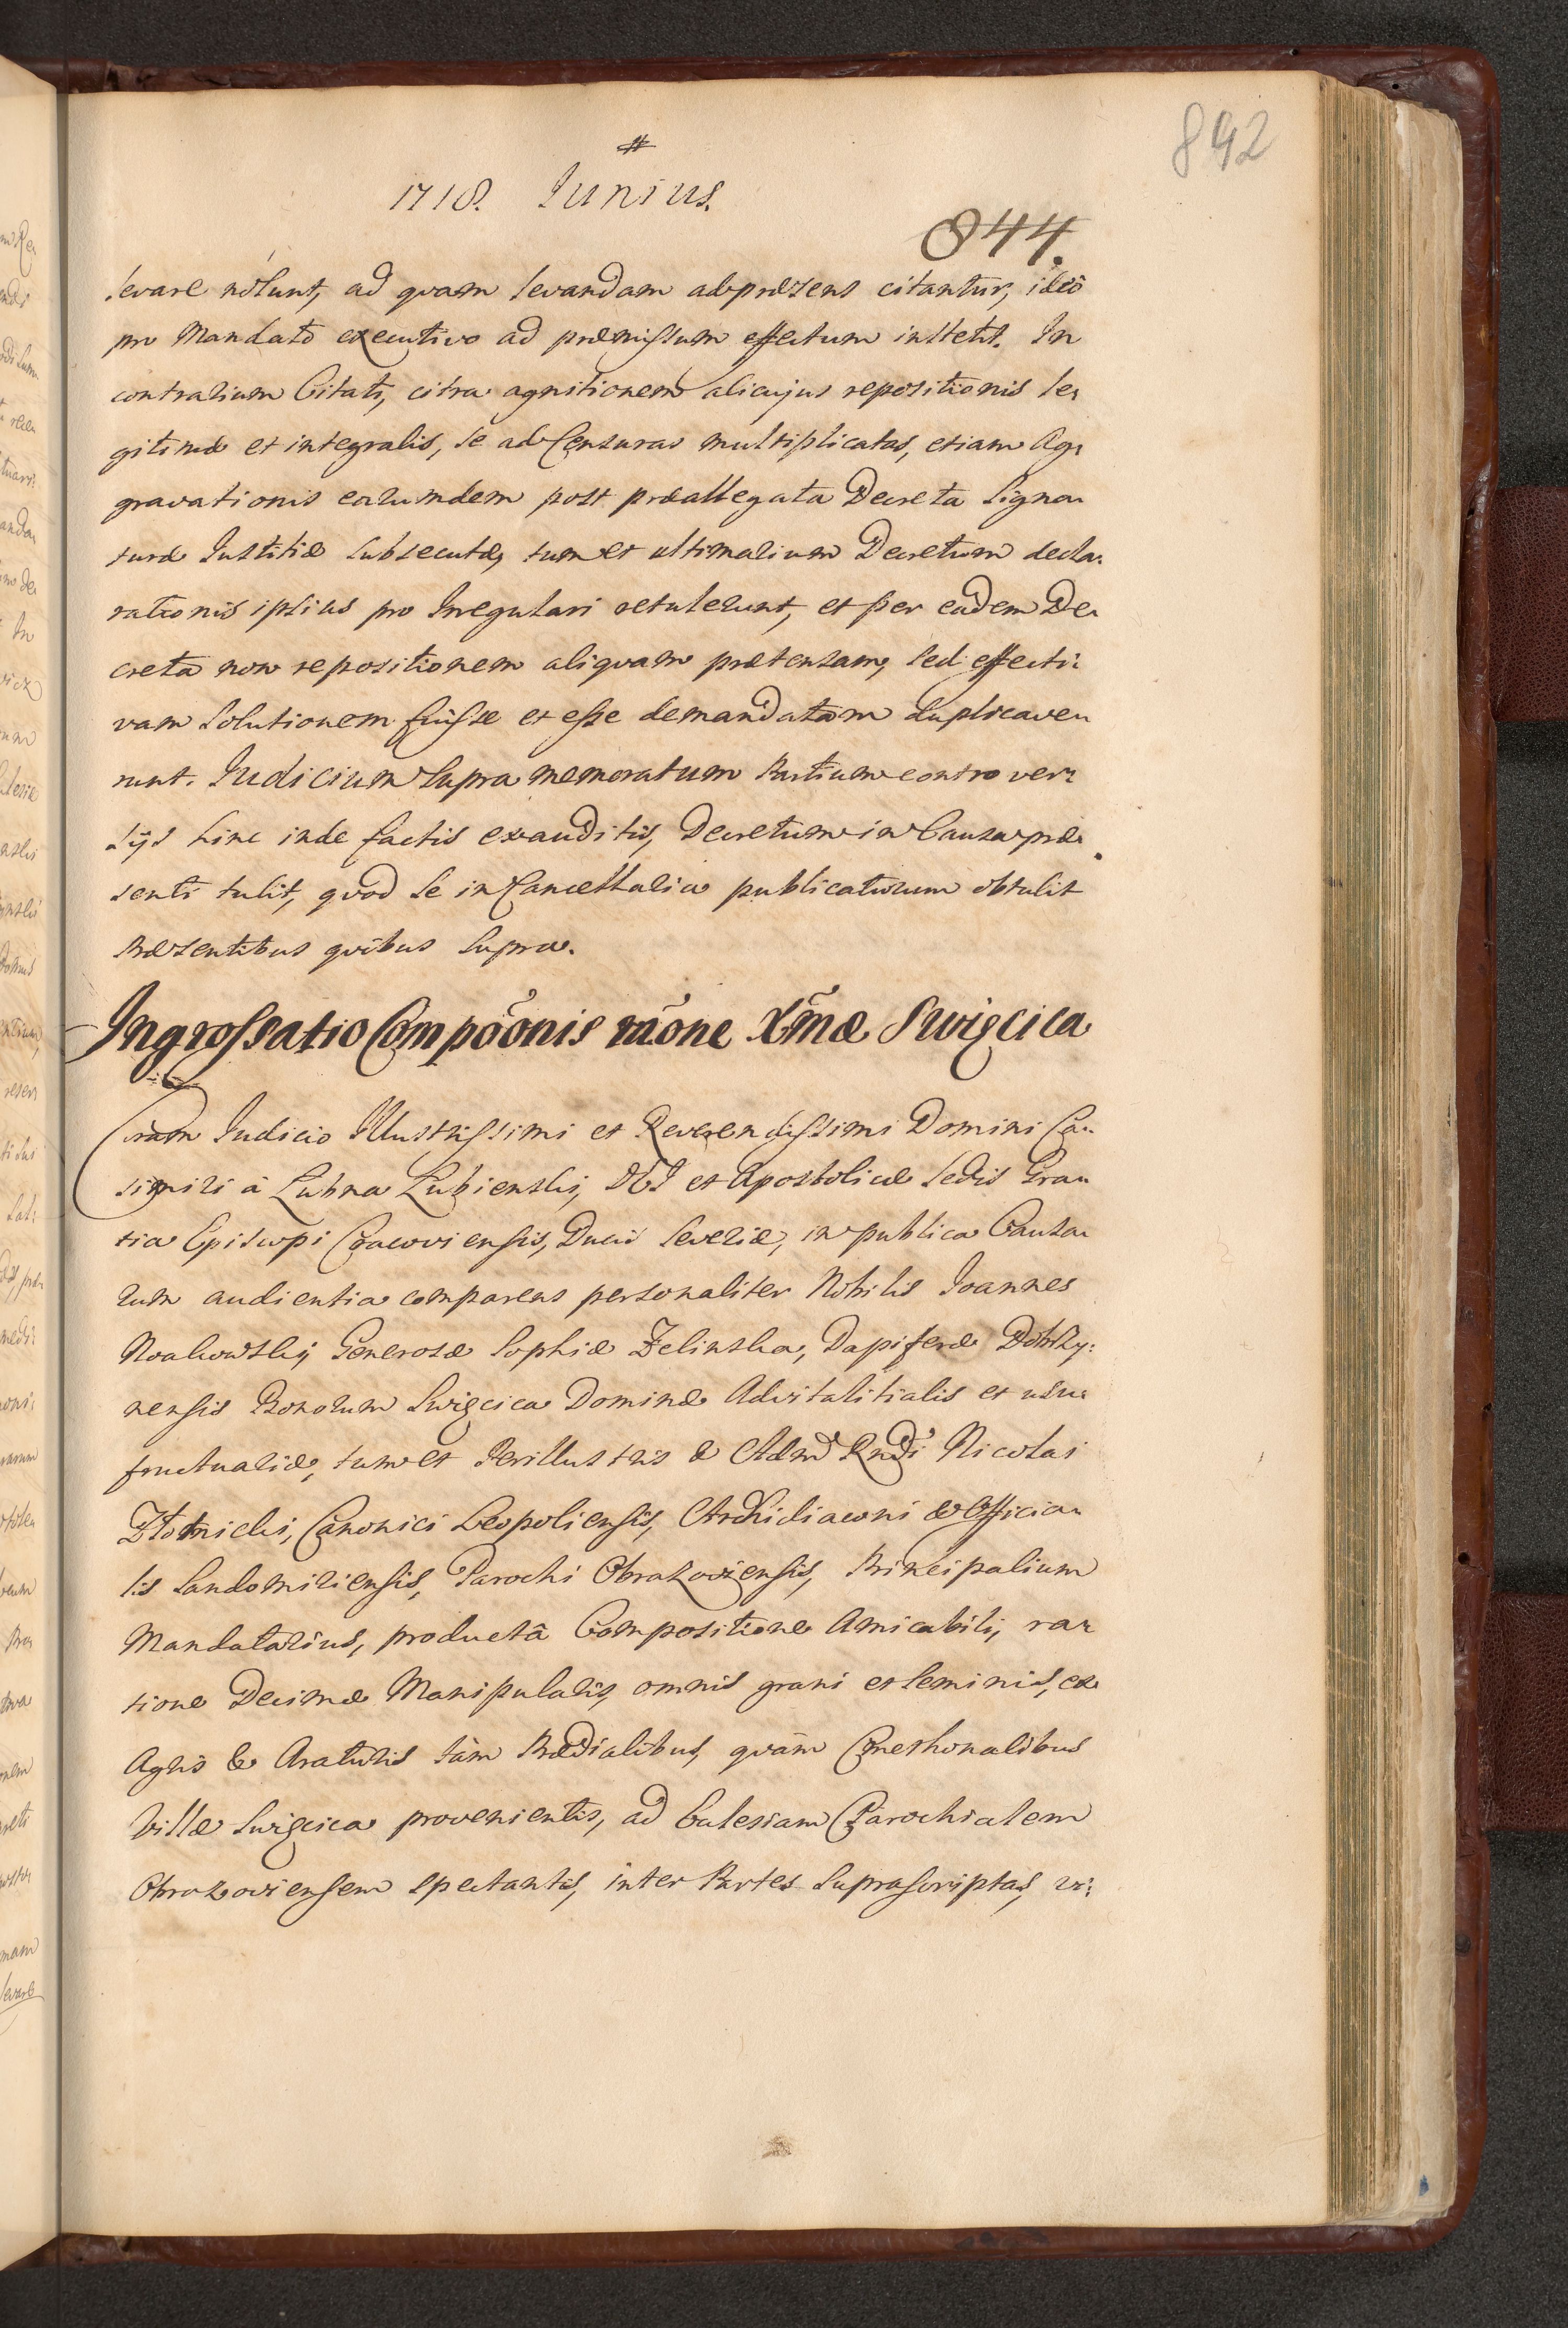 892
#
1718. Junius.
844.
levare nolunt, ad quam levandam ad præsens citantur, ideò
pro Mandato executivo ad præmissum effectum institit. In
contrarium Citati, citra agnitionem alicujus repositionis le-
gitimæ et integralis, se ad Censuras multiplicatas, etiam Ag-
gravationis earumdem post præallegata Decreta Signa-
turæ Justitiæ subsecutas, tum et ultimarium Decretum decla-
rationis ipsius pro Irregulari retulerunt, et per eadem De-
creta non repositionem aliquam prætensam, sed effecti-
vam solutionem fuisse et esse demandatam duplicave-
runt. Judicium supra memoratum Partium controver-
sijs hinc inde factis exauditis, Decretum in Causa præ-
senti tulit, quod se in Cancellaria publicaturum obtulit
Præsentibus quibus supra.
Ingrossatio Compõonis rãone Xmæ Swięcica
Coram Judicio Illustrissimi et Reverendissimi Domini Ca-
simiri à Łubna Łubienski, Dei et Apostolicæ Sedis Gra-
tia Episcopi Cracoviensis, Ducis Severiæ, in publica Causa-
rum audientia comparens personaliter Nobilis Joannes
Noakowskij Generosæ Sophiæ Zelinska, Dapiferæ Dobrzy-
nensis Bonorum Swięcica Dominæ Advitalitialis et usu-
fructuariæ, tum et Perillustris & Adm Rndi Nicolai
Złotnicki, Canonici Leopoliensis, Archidiaconi & Officia-
lis Sandomiriensis, Parochi Obrazoviensis, Principalium
Mandatarius, productâ Compositione Amicabili, ra-
tione Decimæ Manipularis, omnis grani et seminis, ex
Agris & Araturis tàm Prædialibus, quàm Cmethonalibus
Villæ Swięcica provenientis, ad Ecclesiam Parochialem
Obrazoviensem spectantis, inter Partes suprascriptas, vi-